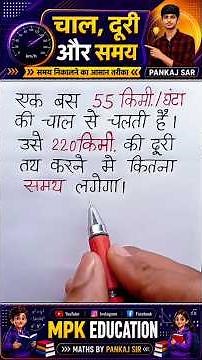 चाल, दूरी
और समय
समय निकालने का आसान तरीका
PANKAJ SAR
एक बस 55 किमी./घंटा
की चाल से चलती है।
उसे 220किमी. की दूरी
तय करने मे कितना
समय लगेगा।
YouTube Instagram Facebook
MPK EDUCATION
MATHS BY PANKAJ SIR